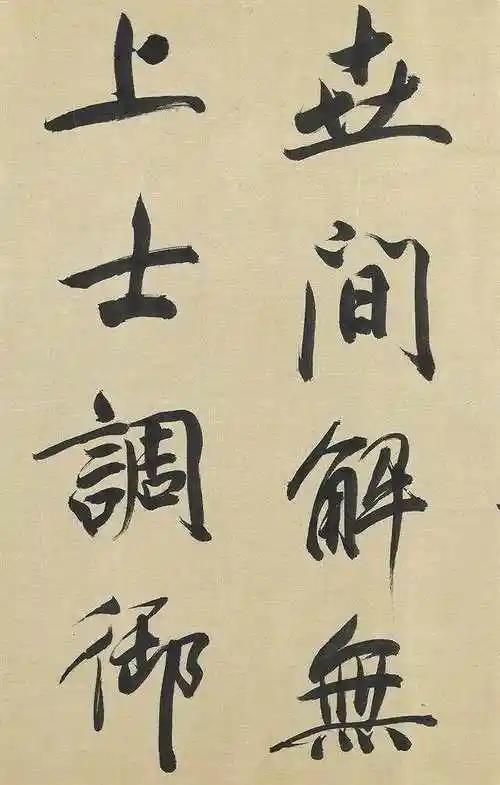 世間解無
上士調御